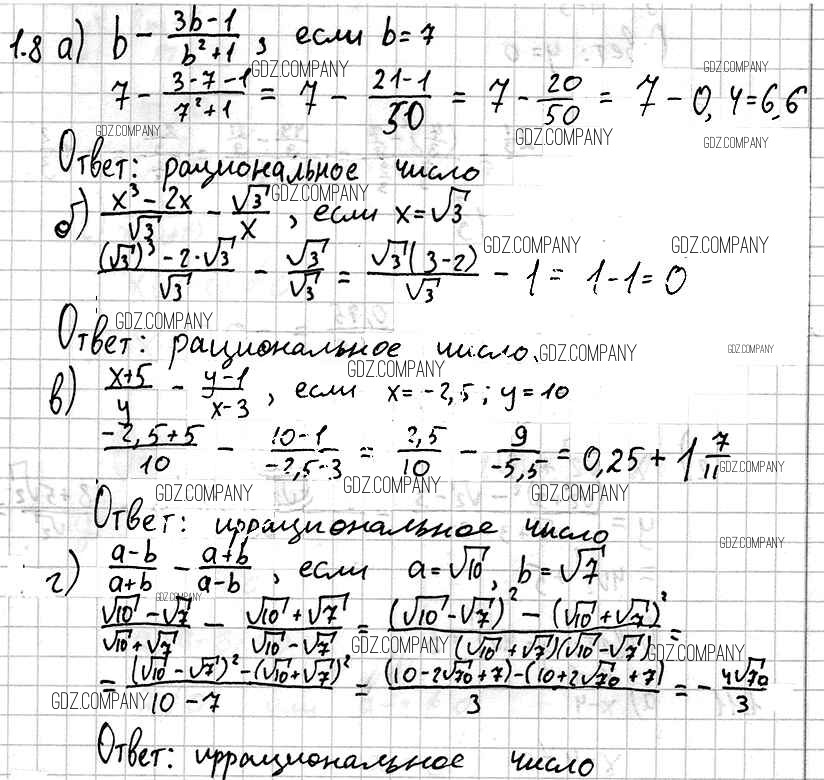 1.8 а) b - (3b-1)/(b²+1), если b=7
7 - (3-7-1)/(7²+1) = 7 - (21-1)/50 = 7 - 20/50 = 7 - 0,4=6,6
Ответ: рациональное число
б) (x³-2x)/√3 - √3/x, если x=√3
((√3)³-2·√3)/√3 - √3/√3 = √3(3-2)/√3 - 1 = 1-1=0
Ответ: рациональное число.
в) (x+5)/y - (y-1)/(x-3), если x=-2,5; y=10
(-2,5+5)/10 - (10-1)/(-2,5-3) = 2,5/10 - 9/(-5,5) = 0,25 + 1 7/11
Ответ: иррациональное число
г) (a-b)/(a+b) - (a+b)/(a-b), если a=√10, b=√7
(√10-√7)/(√10+√7) - (√10+√7)/(√10-√7) = ((√10-√7)²-(√10+√7)²)/((√10+√7)(√10-√7)) =
= ((√10-√7)²-(√10+√7)²)/(10-7) = ((10-2√70+7)-(10+2√70+7))/3 = -4√70/3
Ответ: иррациональное число
GDZ.COMPANY